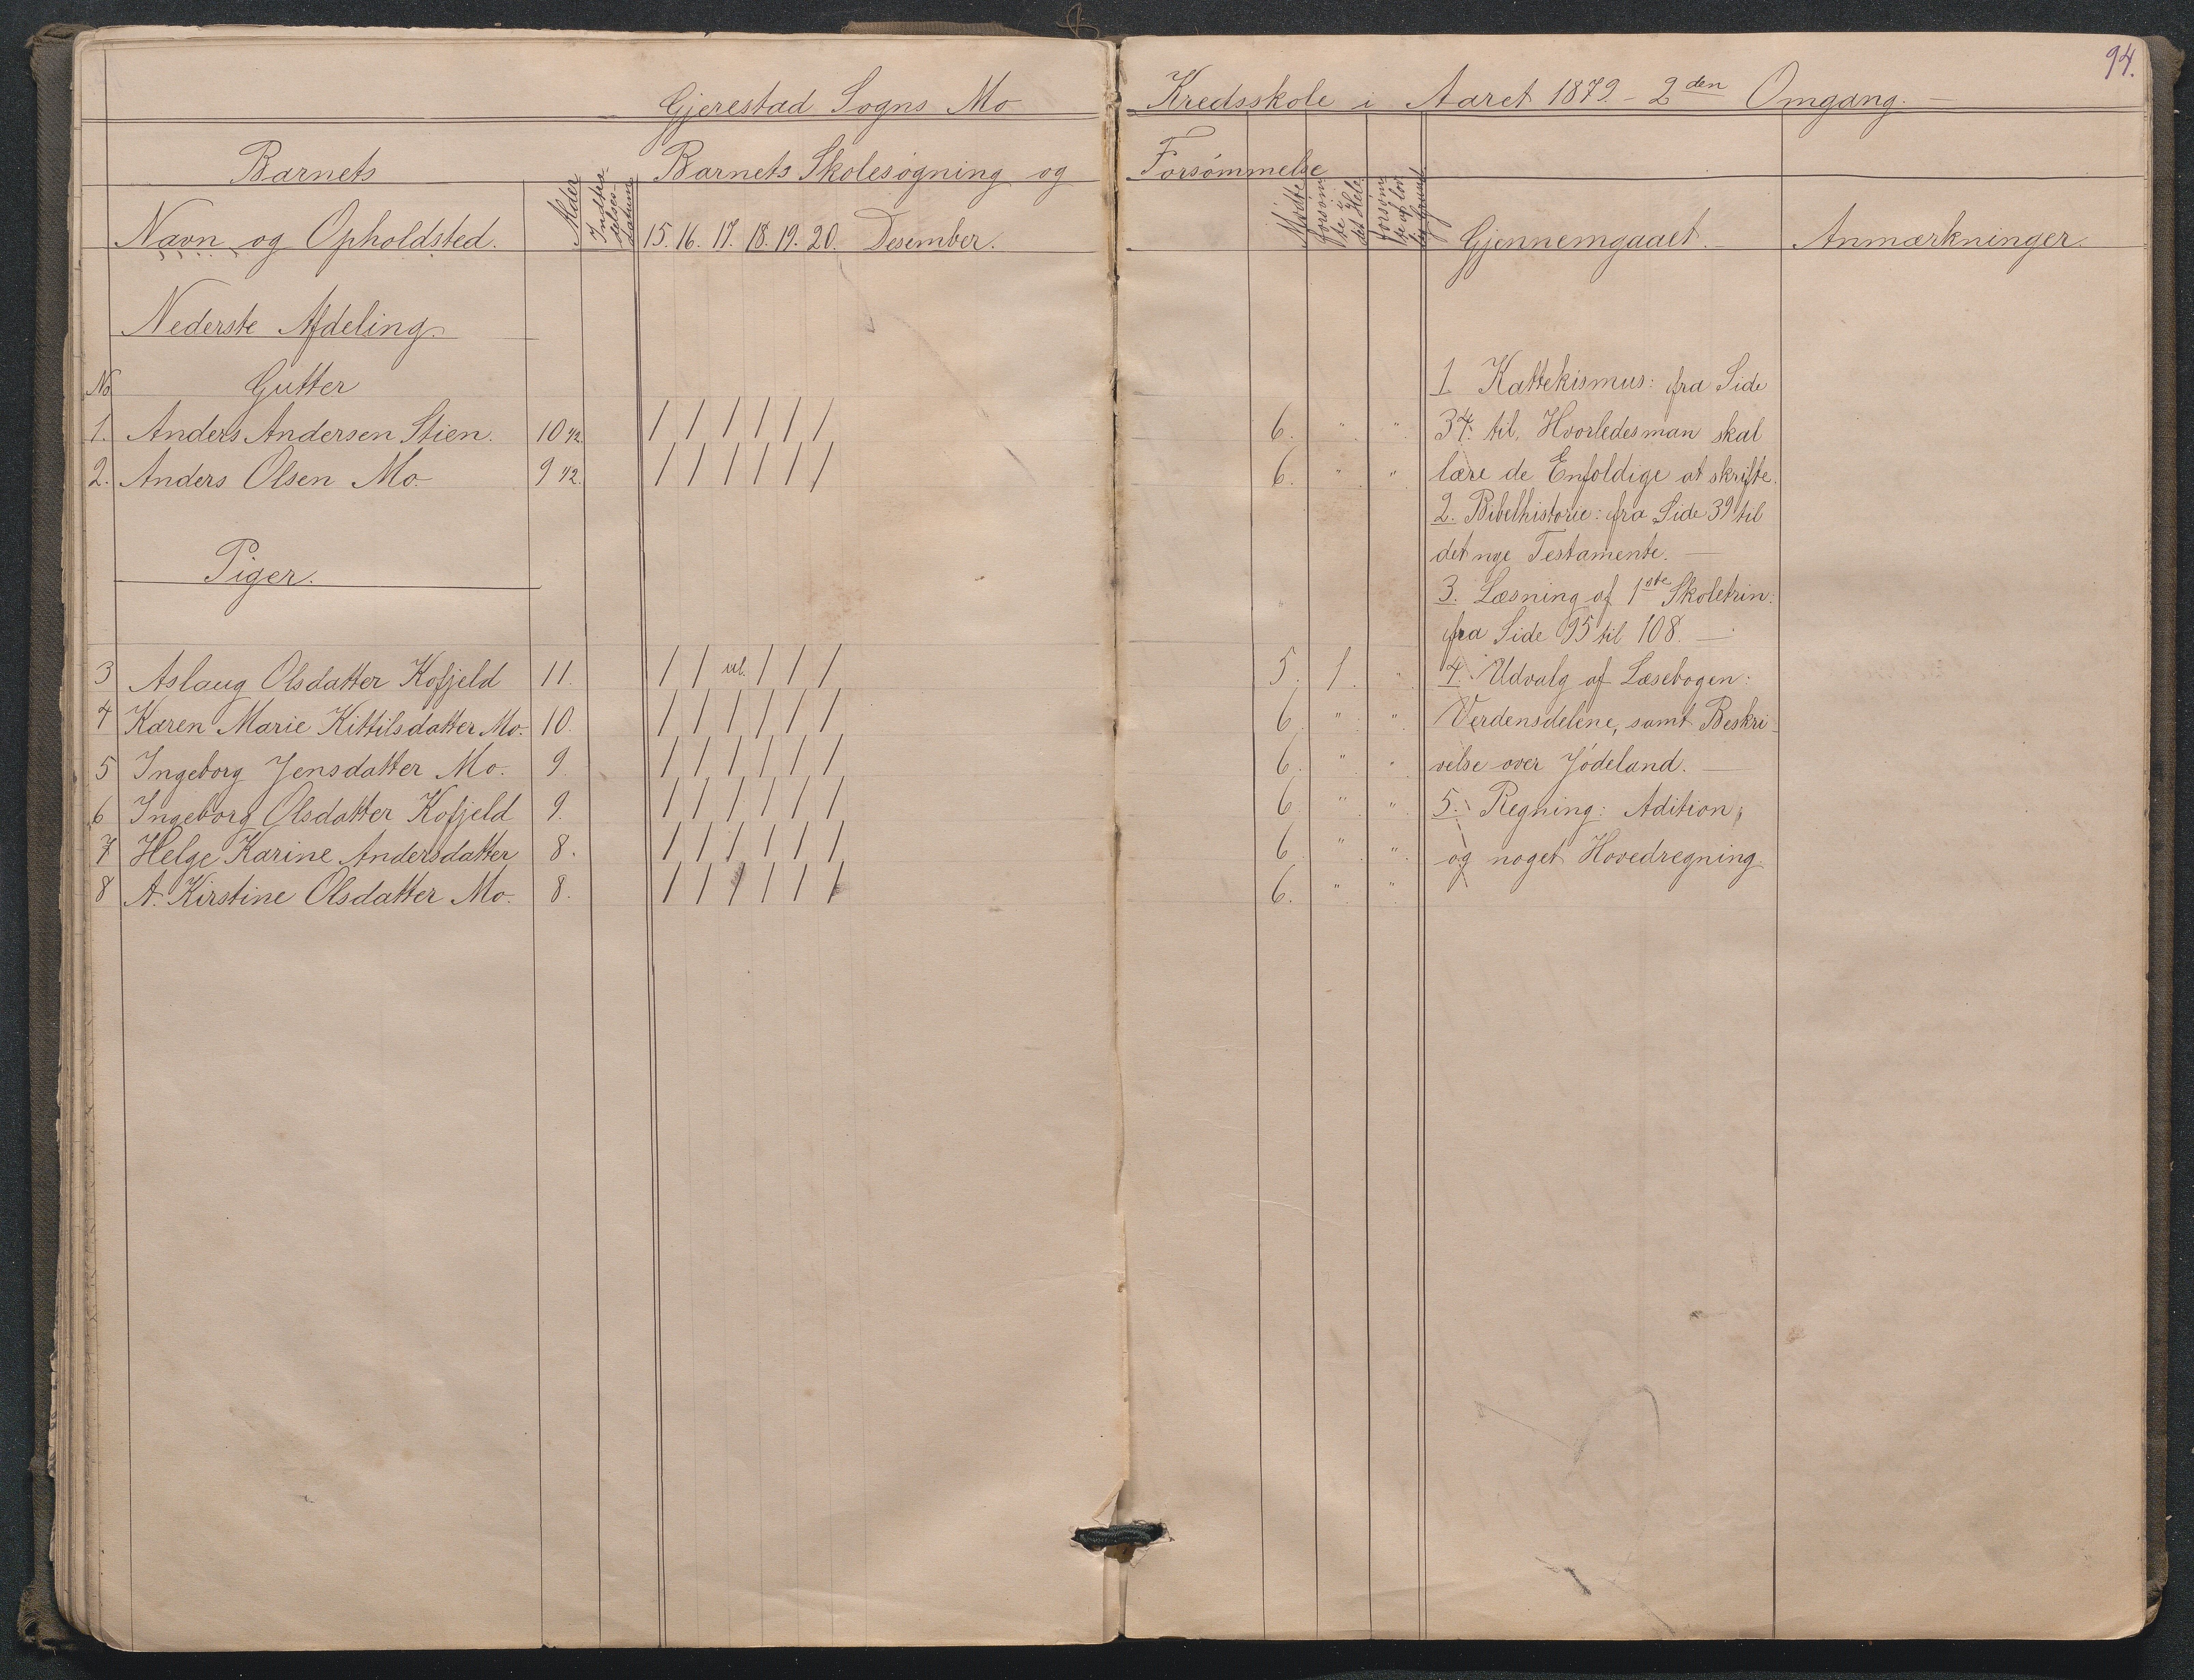 94.
Gjerestad Sogns Mo Kredsskole i Aaret 1879 - 2den Omgang. -
Barnets Barnets Skolesøgning og Forsømmelse
Navn og Opholdsted. Alder Indtrædelsesdatum 15. 16. 17. 18. 19. 20. Desember. Mødte Forsømte i det Hele Forsømte af lovlig Grund Gjennemgaaet. Anmærkninger.
Nederste Afdeling.
No Gutter
1. Anders Andersen Stien. 10 1/2. / / / / / / 6. " "
2. Anders Olsen Mo 9 1/2. / / / / / / 6. " "
Piger.
3 Aslaug Olsdatter Kofjeld 11. / / ul. / / / 5. 1. "
4 Karen Marie Kittilsdatter Mo. 10. / / / / / / 6. " "
5 Ingeborg Jensdatter Mo. 9. / / / / / / 6. " "
6 Ingeborg Olsdatter Kofjeld 9. / / / / / / 6. " "
7 Helge Karine Andersdatter 8. / / / / / / 6. " "
8 A. Kirstine Olsdatter Mo. 8. / / / / / / 6. " "
1 Kattekismus: fra Side
34. til, Hvorledes man skal
lære de Enfoldige at skrifte.
2. Bibelhistorie: fra Side 39 til
det nye Testamente. -
3. Læsning af 1ste Skoletrin:
fra Side 95 til 108. -
4. Udvalg af Læsebogen:
Verdensdelene, samt Beskri-
velse over Jødeland. -
5. Regning: Adition,
og noget Hovedregning.